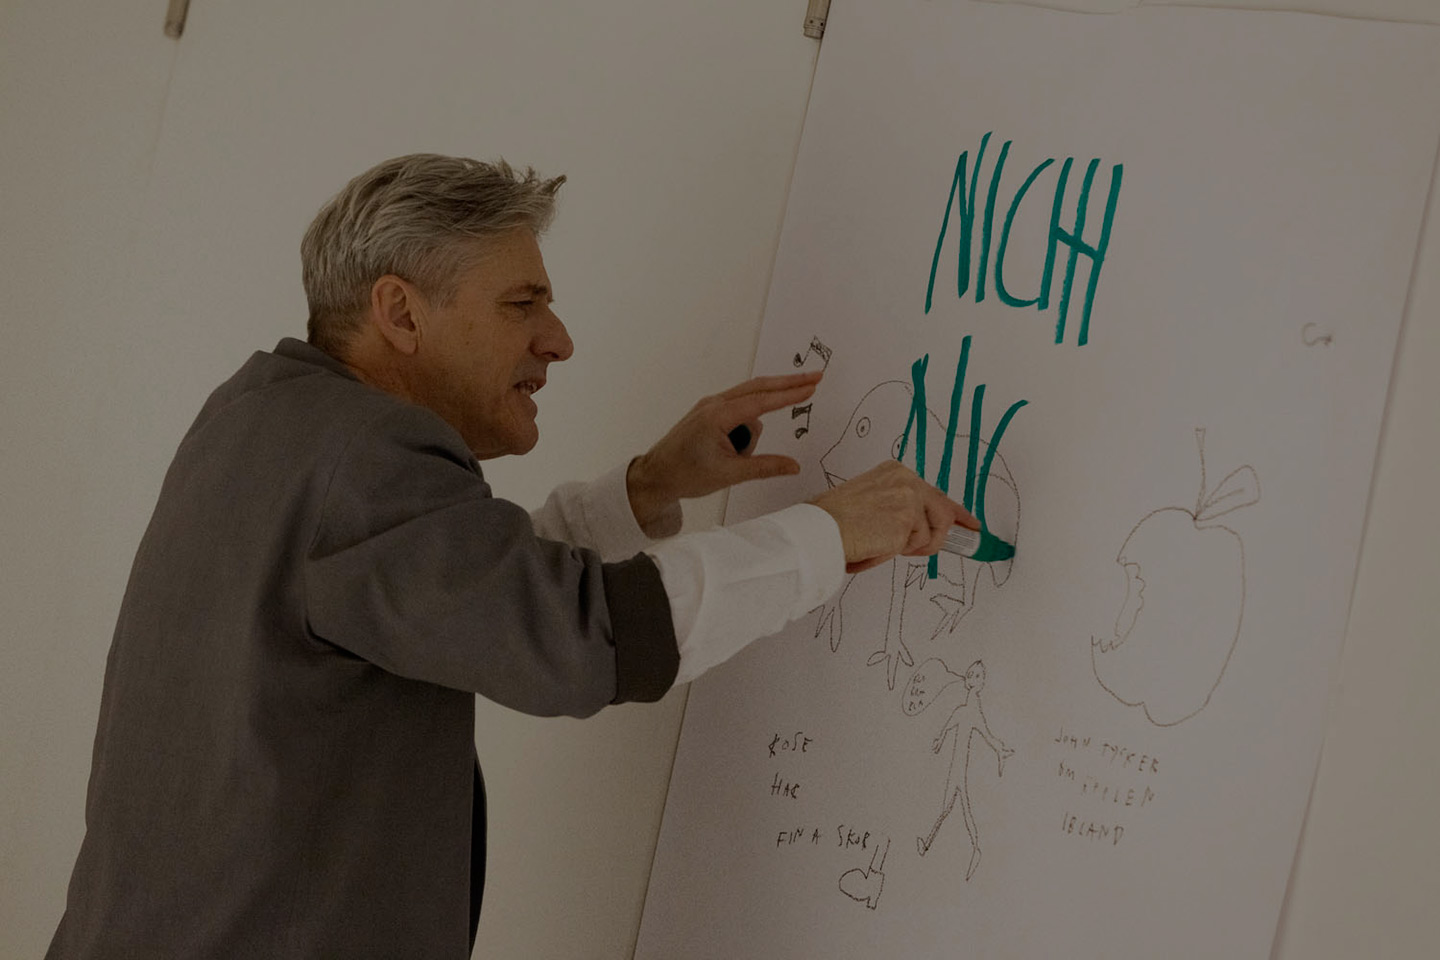 NICHH
NIC
ROSE
HAR
FINA SKOR
JOHN TYCKER
OM ÄPPLEN
IBLAND